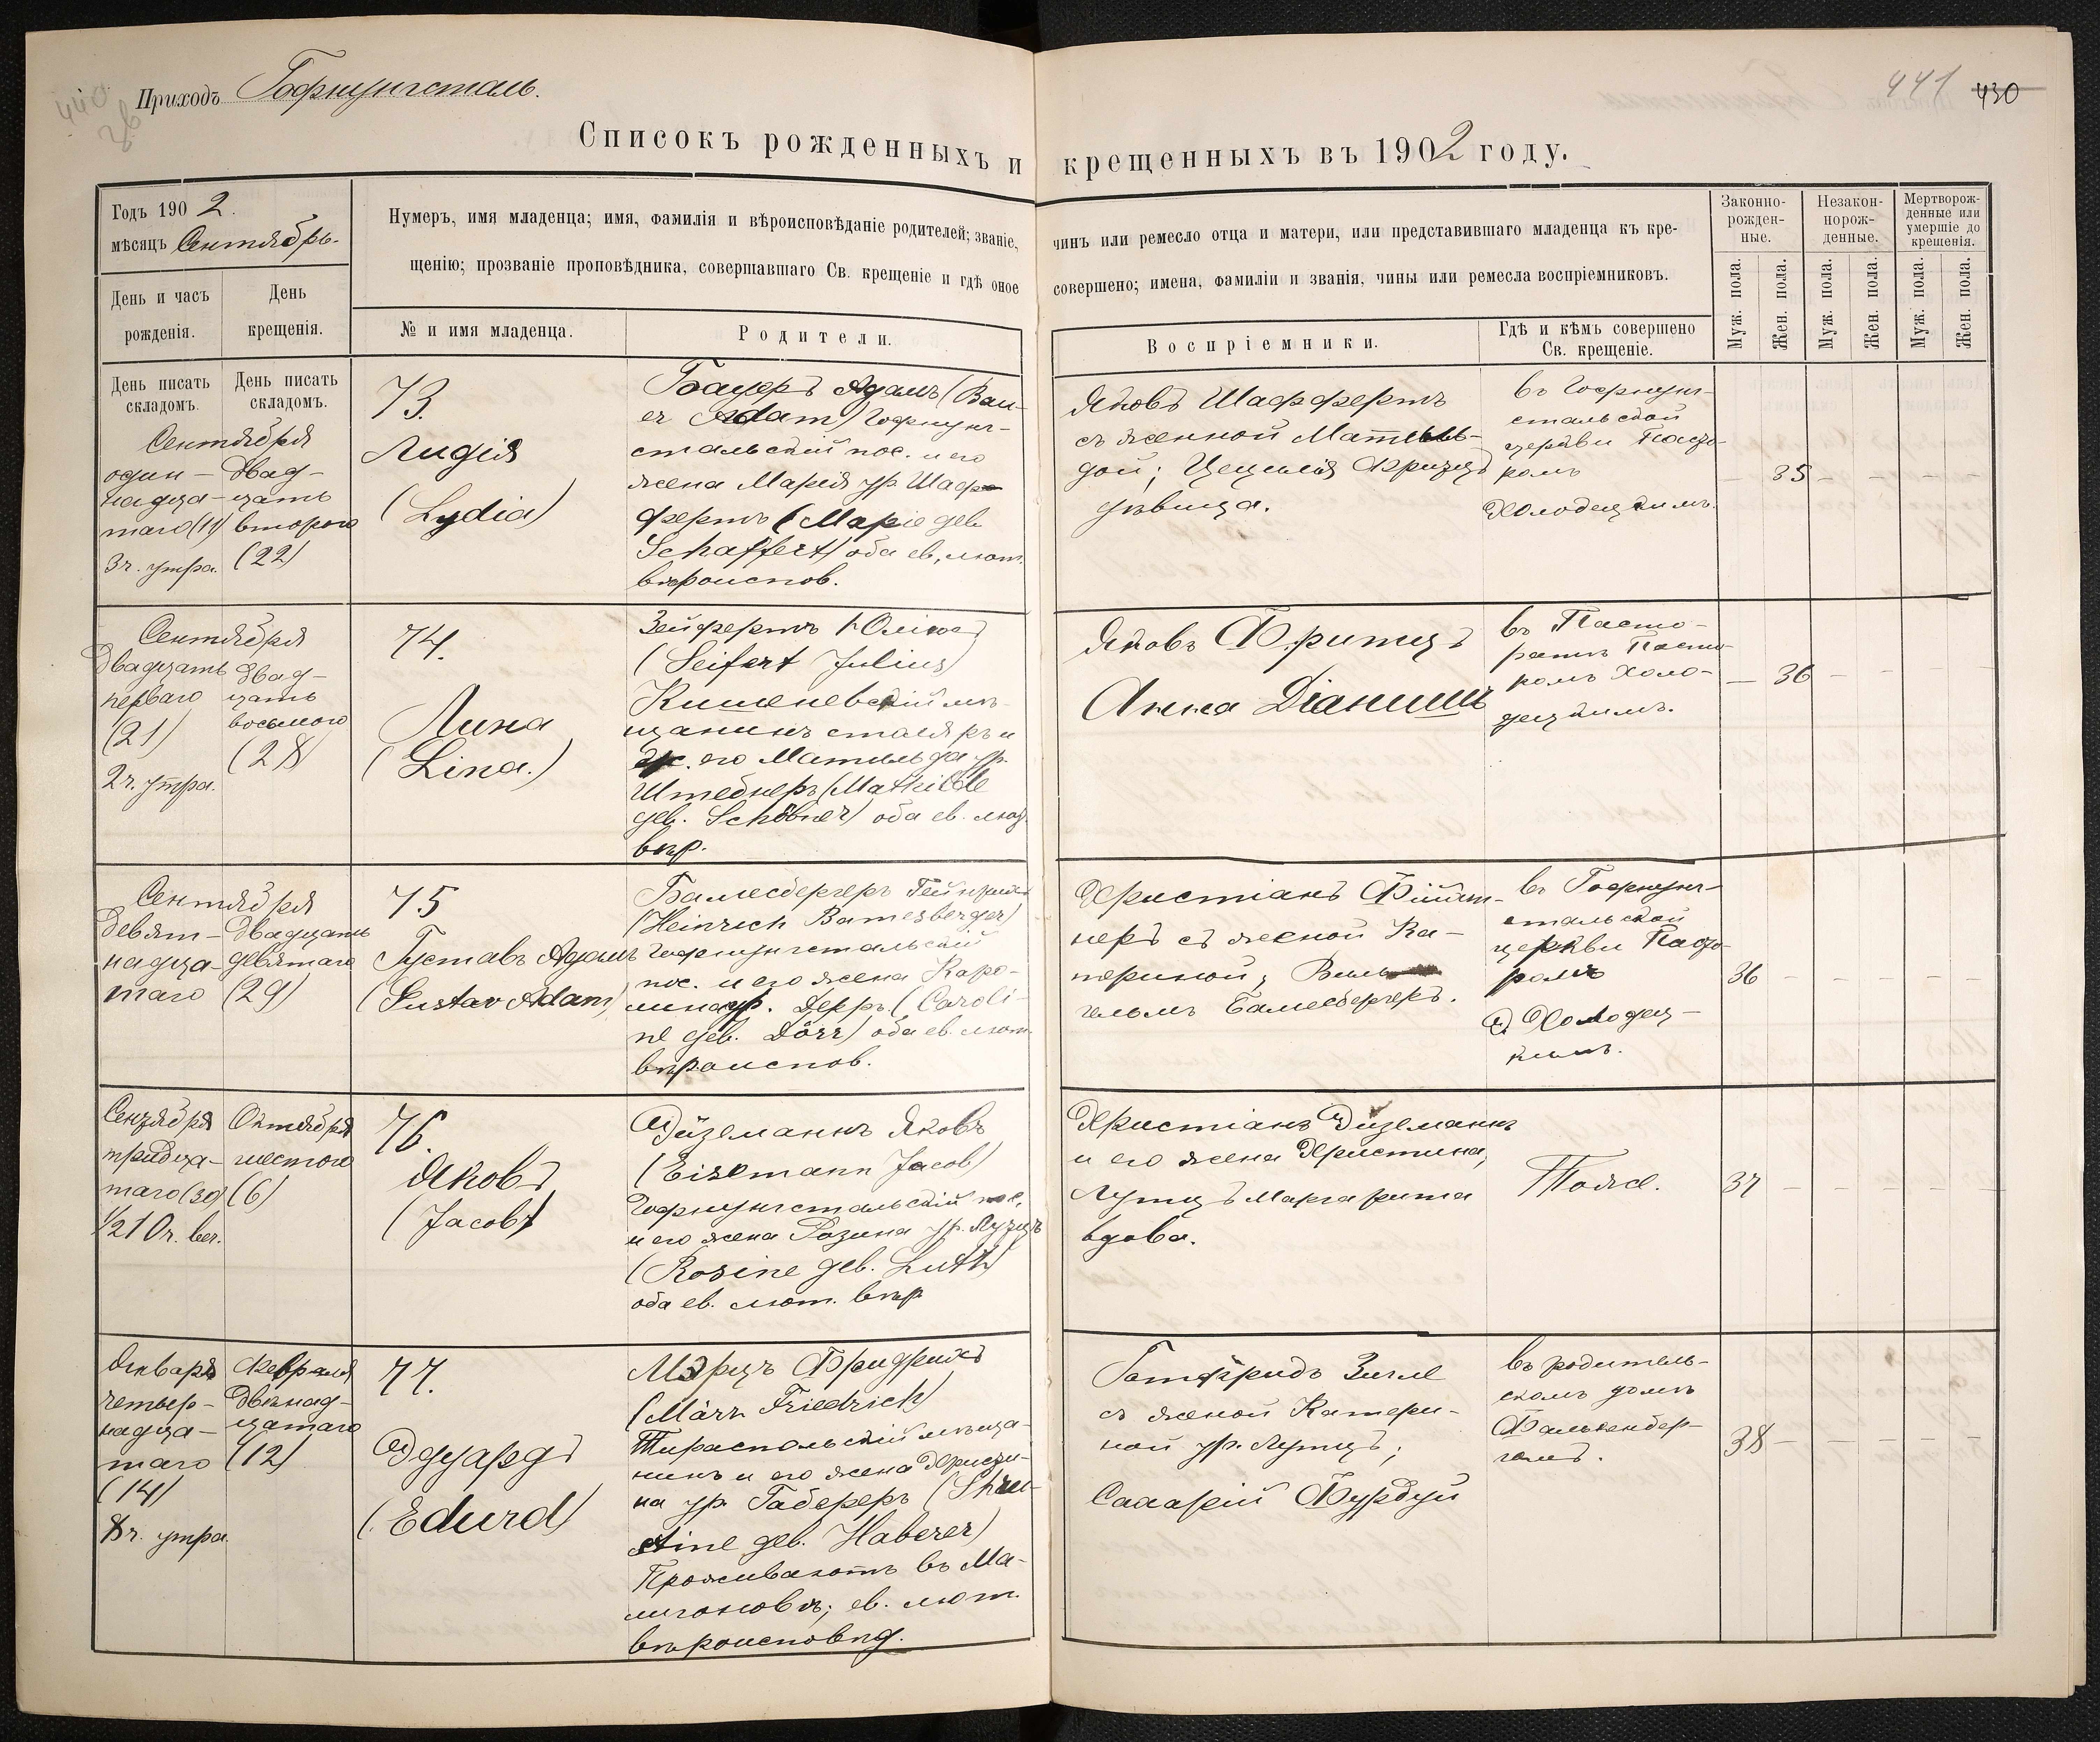 440
26
441
430
Приходъ Гофнунгсталь.
Списокъ рожденныхъ и крещенныхъ въ 1902 году.
Годъ 1902.
мѣсяцъ Сентябрь.
Нумеръ, имя младенца; имя, фамилія и вѣроисповѣданіе родителей; званіе, чинъ или ремесло отца и матери, или представившаго младенца къ кре-
щенію; прозваніе проповѣдника, совершавшаго Св. крещеніе и гдѣ оное совершено; имена, фамиліи и званія, чины или ремесла воспріемниковъ.
Законно-
рожден-
ные.
Незакон-
норож-
денные.
Мертворож-
денные или
умершіе до
крещенія.
День и часъ
рожденія.
День
крещенія.
№ и имя младенца.
Родители.
Воспріемники.
Гдѣ и кѣмъ совершено
Св. крещеніе.
Муж. пола.
Жен. пола.
Муж. пола.
Жен. пола.
Муж. пола.
Жен. пола.
День писать
складомъ.
День писать
складомъ.
Сентября
один-
надца-
таго (11)
3 ч. утра.
двад-
цать
второго
(22)
73.
Лидія
(Lydia)
Бауеръ Адамъ (Bau-
er Adam) Гофнунг-
стальскій пос. и его
жена Марія ур. Шаф-
фертъ (Марie геб.
Schaffert) оба ев. лют.
вѣроиспов.
Яковъ Шаффертъ
съ женной Матиль-
дой; Цецилія Фрицъ
дѣвица.
въ Гофнунг-
стальской
церкви Пасто-
ромъ
Холодецкимъ.
— 35 — — — —
Сентября
двадцать
перваго
(21)
2 ч. утра.
двад-
цать
восьмого
(28)
74.
Лина
(Lina.)
Зейфертъ Юліюсъ
(Seifert Julius)
Кишеневскій мѣ-
щанинъ столяръ и
ж. его Матильда ур.
Штебнеръ (Mathilde
геб. Schöbner) оба ев. лют.
вѣр.
Яковъ Фритцъ
Анна Діанишъ
въ Пасто-
ратѣ Пасто-
ромъ Холо-
децкимъ.
— 36 — —
Сентября
девят-
надца-
таго
двадцать
девятаго
(29)
75
Густавъ Адамъ
(Gustav Adam)
Бамесбергеръ Гейнрихъ
(Heinrich Bamesberger)
Гофнунгстальскій
пос. и его жена Каро-
лина ур. Дерръ (Caroli-
ne геб. Dörr) оба ев. лют.
вѣроиспов.
съ женой Ка-
териной; Виль-
гельмъ Бамесбергеръ.
въ Гофнунг-
стальской
церкви Пасто-
ромъ
Холодец-
кимъ.
36 — — — — —
Сентября
тридца-
таго (30)
½10 ч. веч.
Октября
шестого
(6)
76.
Яковъ
(Jacob)
Эйземаннъ Яковъ
(Eisemann Jacob)
Гофнунгстальскій пос.
и его жена Розина ур. Лутцъ
(Rosine геб. Luth)
оба ев. лют. вѣр
Христіанъ Эйземаннъ
и его жена Христина,
Лутцъ Маргарита
вдова.
Тоже.
37 — — — — —
Января
четыр-
надца-
таго
(14)
8 ч. утра.
Февраля
двѣнад-
цатаго
(12)
77.
Эдуардъ
(Edurd)
Мэрцъ Фридрихъ
(März Friedrich)
Тираспольскій мѣща-
нинъ и его жена Христи-
на ур. Габереръ (Chri-
stine геб. Haberer)
Проживаютъ въ Ма-
лигоновѣ; ев. лют.
вѣроисповѣд.
Готфридъ Зигле
съ женой Катери-
ной ур. Лутцъ;
Саларій Фурдуй
въ родитель-
скомъ домѣ
Фалькенбер-
гомъ.
38 — — — — —